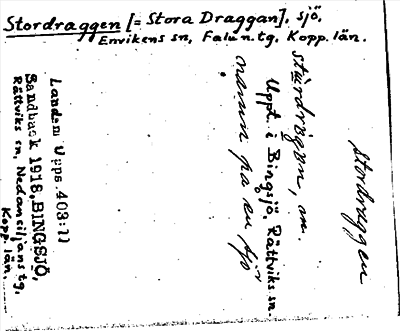 Stordraggen [= Stora Draggan], sjö,
Envikens sn, Falu n. tg. Kopp. län.
Stordraggen
m.
Uppt. i Bingsjö, Rättviks sn.
namn på en sjö
Landsm Upps. 403:11
Sandback 1918, BINGSJÖ,
Rättviks sn, Nedansiljans tg,
Kopp. län.